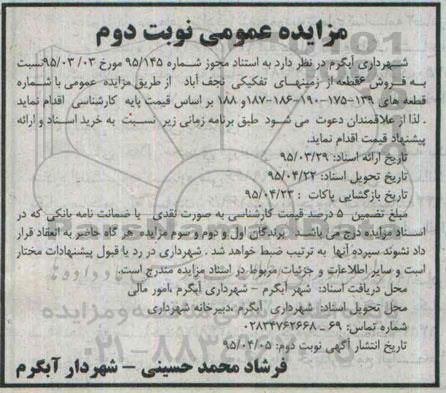 مزایده عمومی نوبت دوم
شهرداری آبگرم در نظر دارد به استناد مجوز شماره ۹۵/۱۴۵ مورخ ۹۵/۰۳/۰۳ نسبت
به فروش ۶قطعه از زمینهای تفکیکی نجف آباد از طریق مزایده عمومی با شماره
قطعه های ۱۳۹-۱۷۵-۱۹۰-۱۸۶-۱۸۷و ۱۸۸ بر اساس قیمت پایه کارشناسی اقدام نماید
. لذا از علاقمندان دعوت می شود طبق برنامه زمانی زیر نسبت به خرید اسناد و ارائه
پیشنهاد قیمت اقدام نماید.
تاریخ ارائه اسناد: ۹۵/۰۳/۲۹
تاریخ تحویل اسناد: ۹۵/۰۴/۲۲
تاریخ بازگشایی پاکات : ۹۵/۰۴/۲۳
مبلغ تضمین ۵ درصد قیمت کارشناسی به صورت نقدی یا ضمانت نامه بانکی که در
اسناد مزایده درج می باشد برندگان اول و دوم و سوم مزایده هر گاه حاضر به انعقاد قرار
داد نشوند سپرده آنها به ترتیب ضبط خواهد شد . شهرداری در رد یا قبول پیشنهادات مختار
است و سایر اطلاعات و جزئیات مربوط در اسناد مزایده مندرج است.
محل دریافت اسناد: شهر آبگرم - شهرداری آبگرم ،امور مالی
محل تحویل اسناد: شهرداری آبگرم ،دبیرخانه شهرداری
شماره تماس: ۶۹ - ۰۲۸۳۴۷۶۲۶۶۸
تاریخ انتشار آگهی نوبت دوم: ۹۵/۰۴/۰۵
فرشاد محمد حسینی - شهردار آبگرم